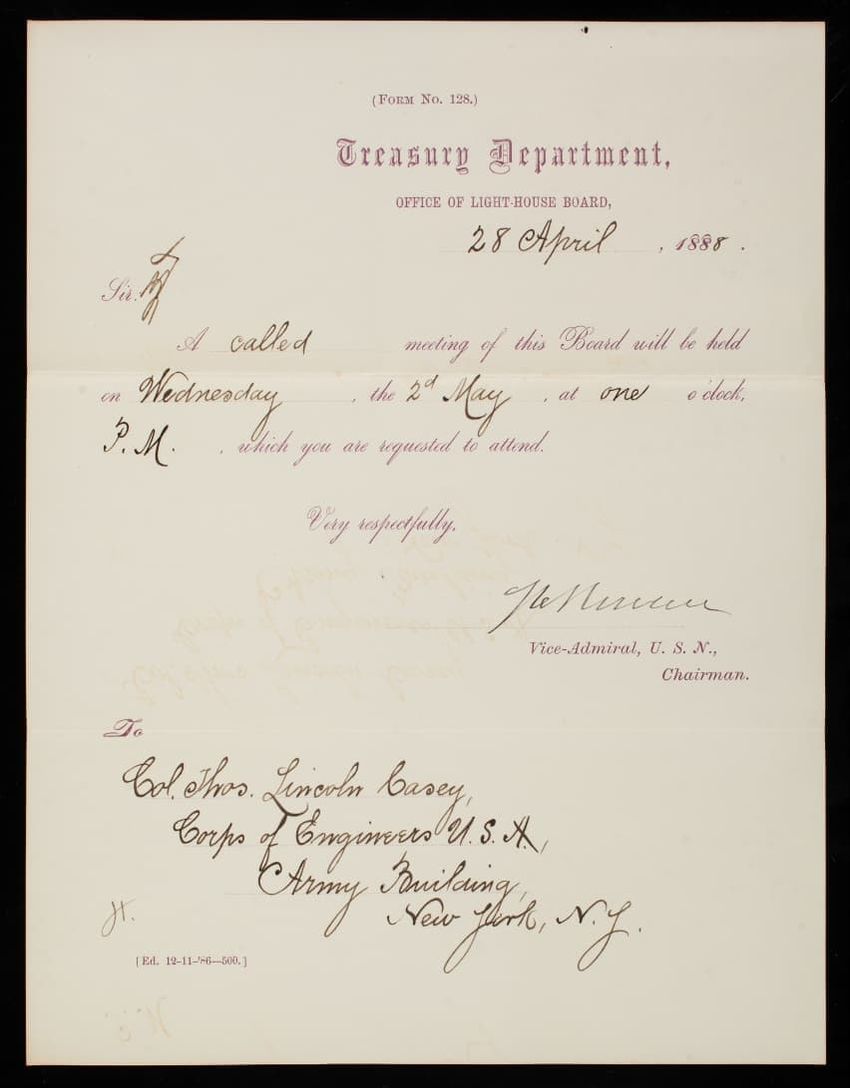 (FORM No. 128.)
Treasury Department,
OFFICE OF LIGHT-HOUSE BOARD,
28 April, 1888.
Sir:
A called meeting of this Board will be held
on Wednesday, the 2d May, at one o'clock,
P. M., which you are requested to attend.
Very respectfully,
Vice-Admiral, U. S. N.,
Chairman.
To
Col. Thos. Lincoln Casey,
Corps of Engineers U. S. A.,
Army Building,
New York, N. Y.
H.
[Ed. 12-11-'86—500.]